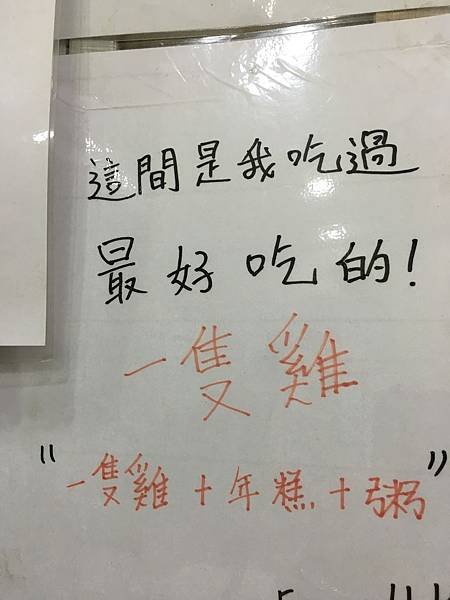 這間是我吃過
最好吃的!
一隻雞
"一隻雞+年糕+粥"